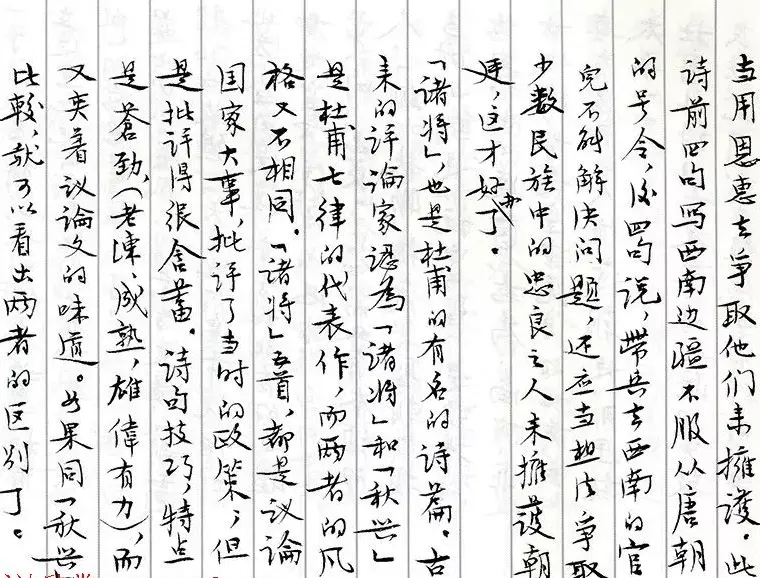 当用恩惠去争取他们来擁護。此
诗前四句写西南边疆不服从唐朝
的号令，后四句说，带兵去西南的官
兜不能解决问题，还应当想法争取
少数民族中的忠良之人来擁護朝
廷，这才好办了。
「诸将」，也是杜甫的有名的诗篇。古
来的评论家認為「诸将」和「秋兴」
是杜甫七律的代表作，而两者的风
格又不相同。「诸将」五首，都是议论
国家大事，批评了当时的政策，但
是批评得很含蓄。诗句技巧，特点
是蒼勁，（老陳，成熟，雄偉有力），而
又夹着议论文的味道。如果同「秋兴
比較，就可以看出两者的区别了。